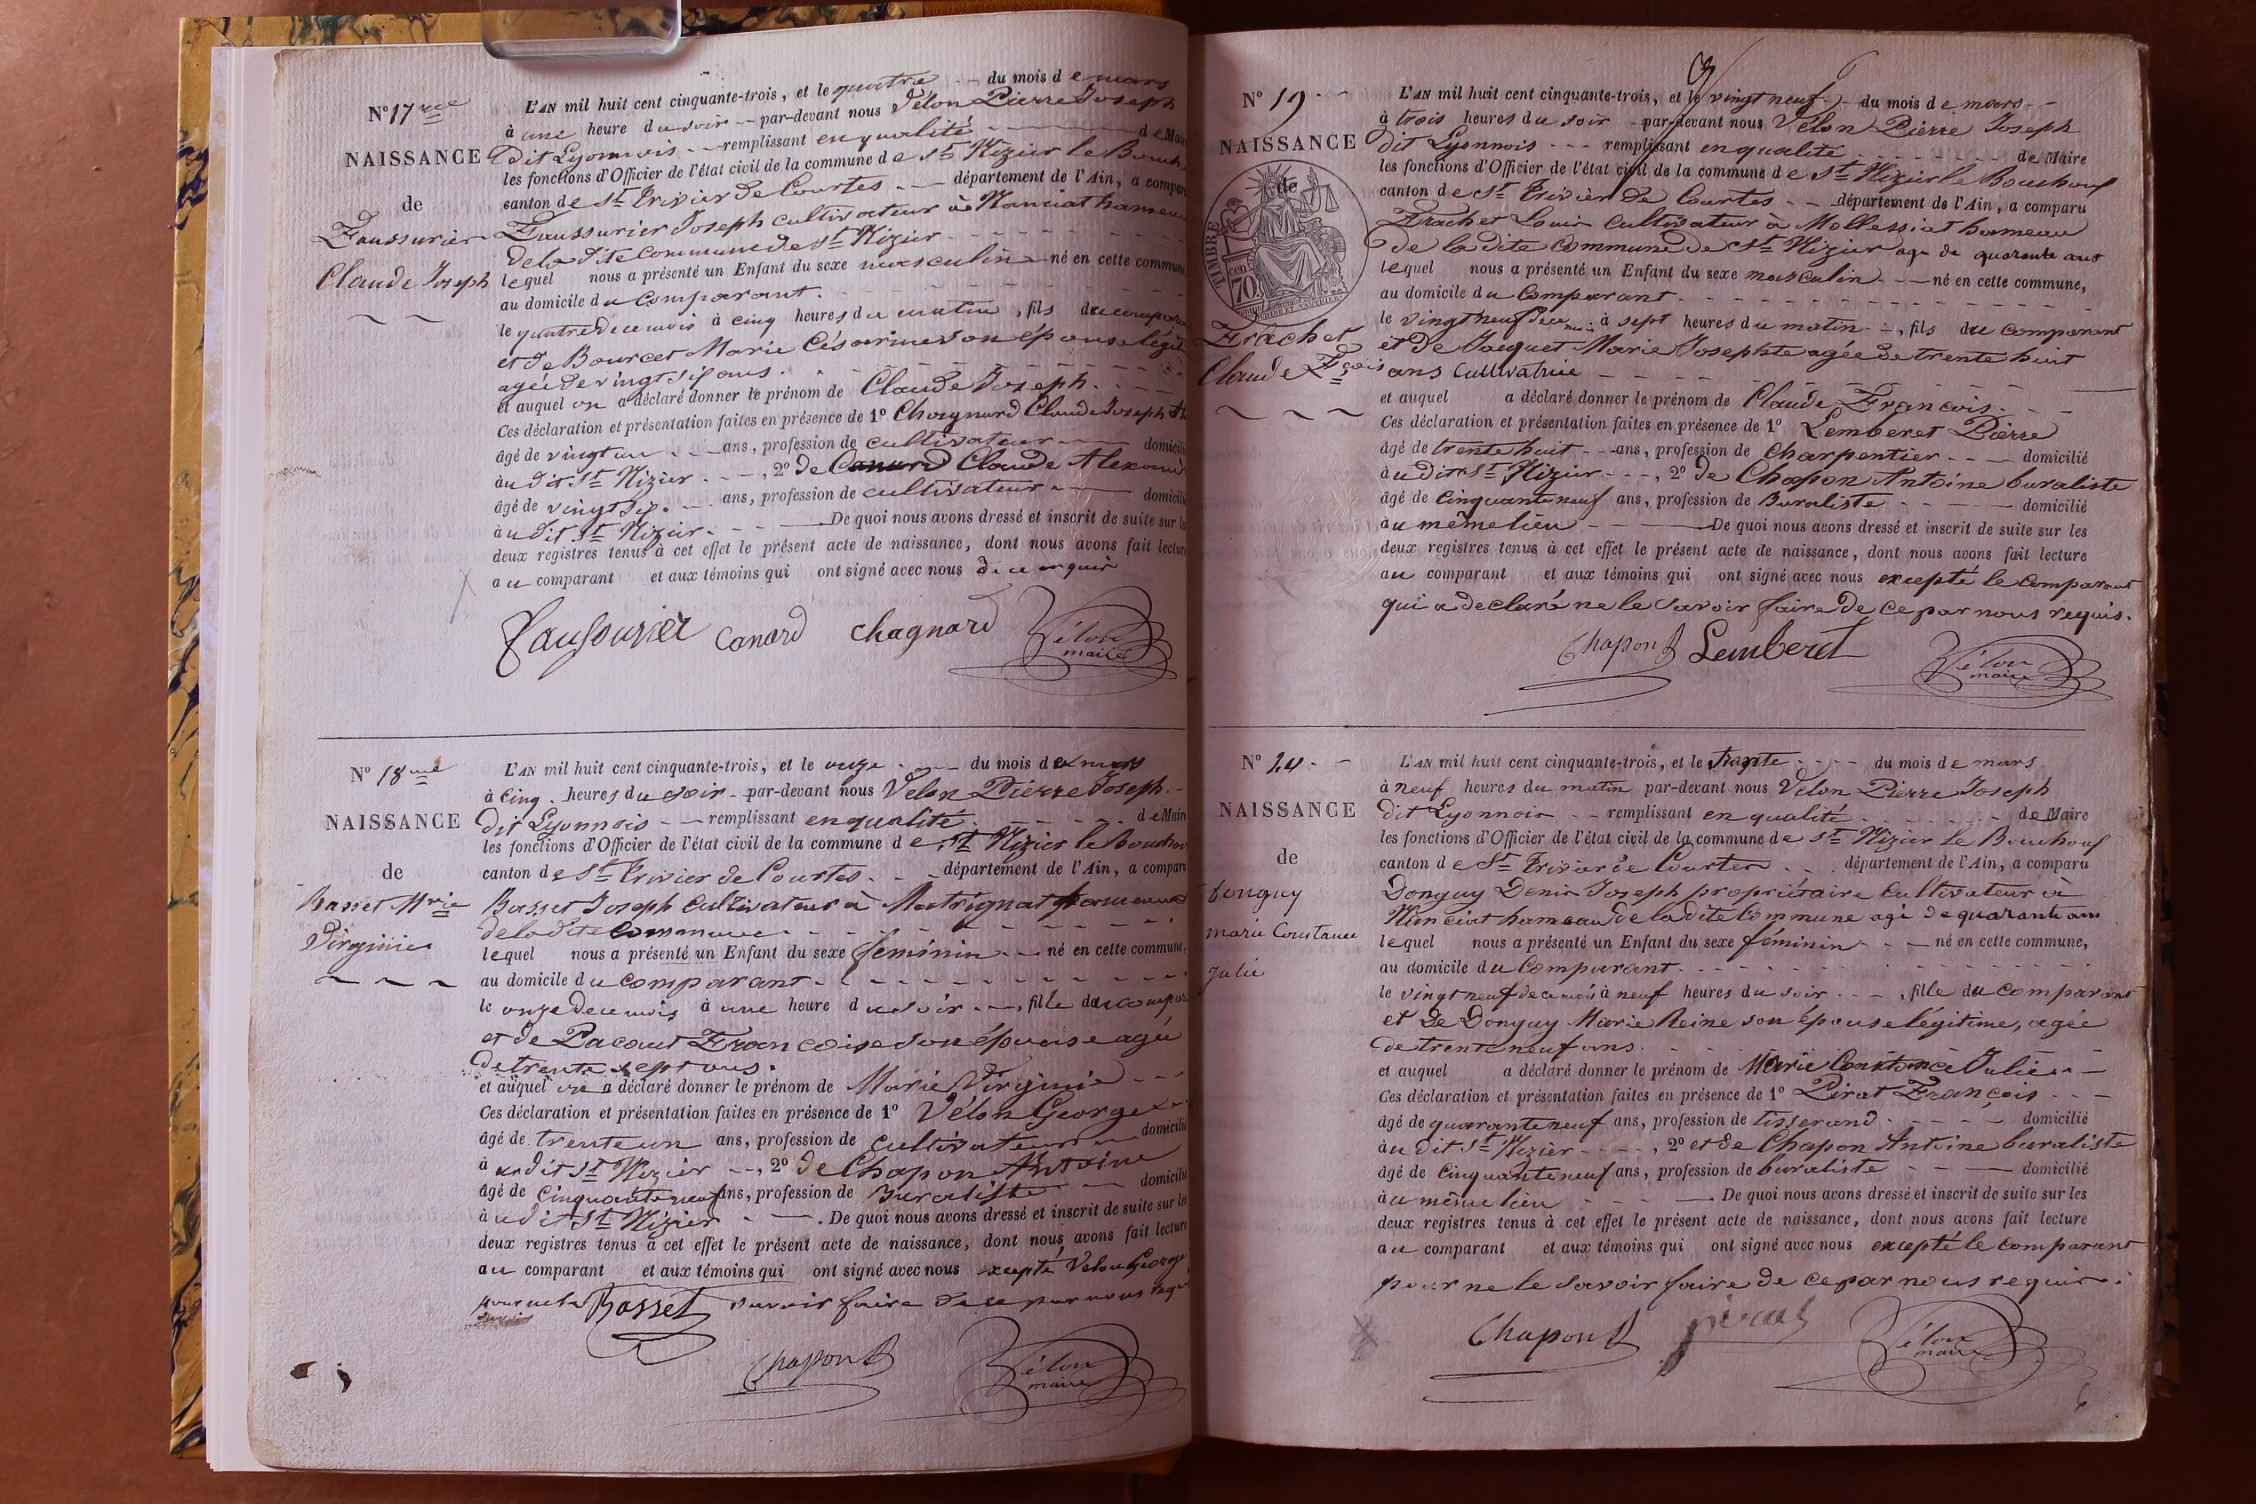 N° 17 me
NAISSANCE
de
Faussurier
Claude Joseph
L'AN mil huit cent cinquante-trois, et le quatre du mois de mars
à une heure du soir par-devant nous Vélon Pierre Joseph
dit Lyonnois remplissant en qualité de Mair
les fonctions d'Officier de l'état civil de la commune de St Nizier le Bouch
canton de St Trivier de Courtes département de l'Ain, a compar
Faussurier Joseph cultivateur à Manciat hameau
de la dite commune de St Nizier
lequel nous a présenté un Enfant du sexe masculin né en cette commune
au domicile du comparant.
le quatre de ce mois à cinq heures du matin, fils du compar
et de Bourcet Marie Césarine son épouse légit
agée de vingt six ans.
et auquel on a déclaré donner le prénom de Claude Joseph.
Ces déclaration et présentation faites en présence de 1° Chagnard Claude Joseph
âgé de vingt un ans, profession de cultivateur domicilié
au dit St Nizier, 2° de Canard Claude Alexand
âgé de vingt six ans, profession de cultivateur domicilié
au dit St Nizier. De quoi nous avons dressé et inscrit de suite sur le
deux registres tenus à cet effet le présent acte de naissance, dont nous avons fait lecture
au comparant et aux témoins qui ont signé avec nous de ce enquis
Fausourier Canard Chagnard Vélon
maire
N° 18 me
NAISSANCE
de
Basset Mrie
Virginie
L'AN mil huit cent cinquante-trois, et le onze du mois de mars
à cinq heures du soir par-devant nous Velon Pierre Joseph
dit Lyonnois remplissant en qualité de Maire
les fonctions d'Officier de l'état civil de la commune de St Nizier le Bouchou
canton de St Trivier de Courtes département de l'Ain, a comparu
Basset Joseph cultivateur à Matrignat hameau
de la dite commune
lequel nous a présenté un Enfant du sexe féminin né en cette commune,
au domicile du comparant
le onze de ce mois à une heure du soir, fille du compar
et de Pacaut Françoise son épouse agée
de trente sept ans.
et auquel on a déclaré donner le prénom de Marie Virginie
Ces déclaration et présentation faites en présence de 1° Vélon George
âgé de trente un ans, profession de cultivateur domicilié
à au dit St Nizier, 2° de Chapon Antoine
âgé de cinquante neuf ans, profession de buraliste domicilié
au dit St Nizier. De quoi nous avons dressé et inscrit de suite sur les
deux registres tenus à cet effet le présent acte de naissance, dont nous avons fait lecture
au comparant et aux témoins qui ont signé avec nous excepté Velon George
pour ne le Basset savoir faire de ce par nous requi
Chapon Vélon
maire
N° 19
NAISSANCE
de
TIMBRE
70
Frachet
Claude Fçois
L'AN mil huit cent cinquante-trois, et le vingt neuf du mois de mars
à trois heures du soir par-devant nous Vélon Pierre Joseph
dit Lyonnois remplissant en qualité de Maire
les fonctions d'Officier de l'état civil de la commune de St Nizier le Bouchoux
canton de St Trivier de Courtes département de l'Ain, a comparu
Frachet Louis cultivateur à Mollessiat hameau
de la dite commune de St Nizier agé de quarante ans
lequel nous a présenté un Enfant du sexe masculin né en cette commune,
au domicile du comparant.
le vingt neuf de ce mois à sept heures du matin, fils du comparant
et de Jacquet Marie Josephte agée de trente huit
ans cultivatrice
et auquel a déclaré donner le prénom de Claude François.
Ces déclaration et présentation faites en présence de 1° Lemberet Pierre
âgé de trente huit ans, profession de charpentier domicilié
au dit St Nizier, 2° de Chapon Antoine buraliste
âgé de cinquante neuf ans, profession de Buraliste domicilié
au même lieu De quoi nous avons dressé et inscrit de suite sur les
deux registres tenus à cet effet le présent acte de naissance, dont nous avons fait lecture
au comparant et aux témoins qui ont signé avec nous excepté le comparant
qui a declaré ne le savoir faire de ce par nous requis.
Chapon Lemberet Vélon
maire
N° 20
NAISSANCE
de
Donguy
marie Constance
Julie
L'AN mil huit cent cinquante-trois, et le trente du mois de mars
à neuf heures du matin par-devant nous Velon Pierre Joseph
dit Lyonnois remplissant en qualité de Maire
les fonctions d'Officier de l'état civil de la commune de St Nizier le Bouchoux
canton de St Trivier de Courtes département de l'Ain, a comparu
Donguy Denis Joseph propriétaire cultivateur à
Manciat hameau de la dite commune agé de quarante ans
lequel nous a présenté un Enfant du sexe féminin né en cette commune,
au domicile du comparant.
le vingt neuf de ce mois à neuf heures du soir, fille du comparant
et de Donguy Marie Reine son épouse légitime, agée
de trente neuf ans.
et auquel a déclaré donner le prénom de Marie Constance Julie
Ces déclaration et présentation faites en présence de 1° Pirat François
âgé de quarante neuf ans, profession de tisserand domicilié
au dit St Nizier, 2° et de Chapon Antoine buraliste
âgé de cinquante neuf ans, profession de buraliste domicilié
au même lieu. De quoi nous avons dressé et inscrit de suite sur les
deux registres tenus à cet effet le présent acte de naissance, dont nous avons fait lecture
au comparant et aux témoins qui ont signé avec nous excepté le comparant
pour ne le savoir faire de ce par nous requis.
Chapon Vélon
maire